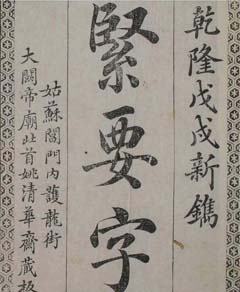 乾隆戊戌新鐫
緊要字
姑蘇閶門内護龍街
大關帝廟北首姚清華齋藏板